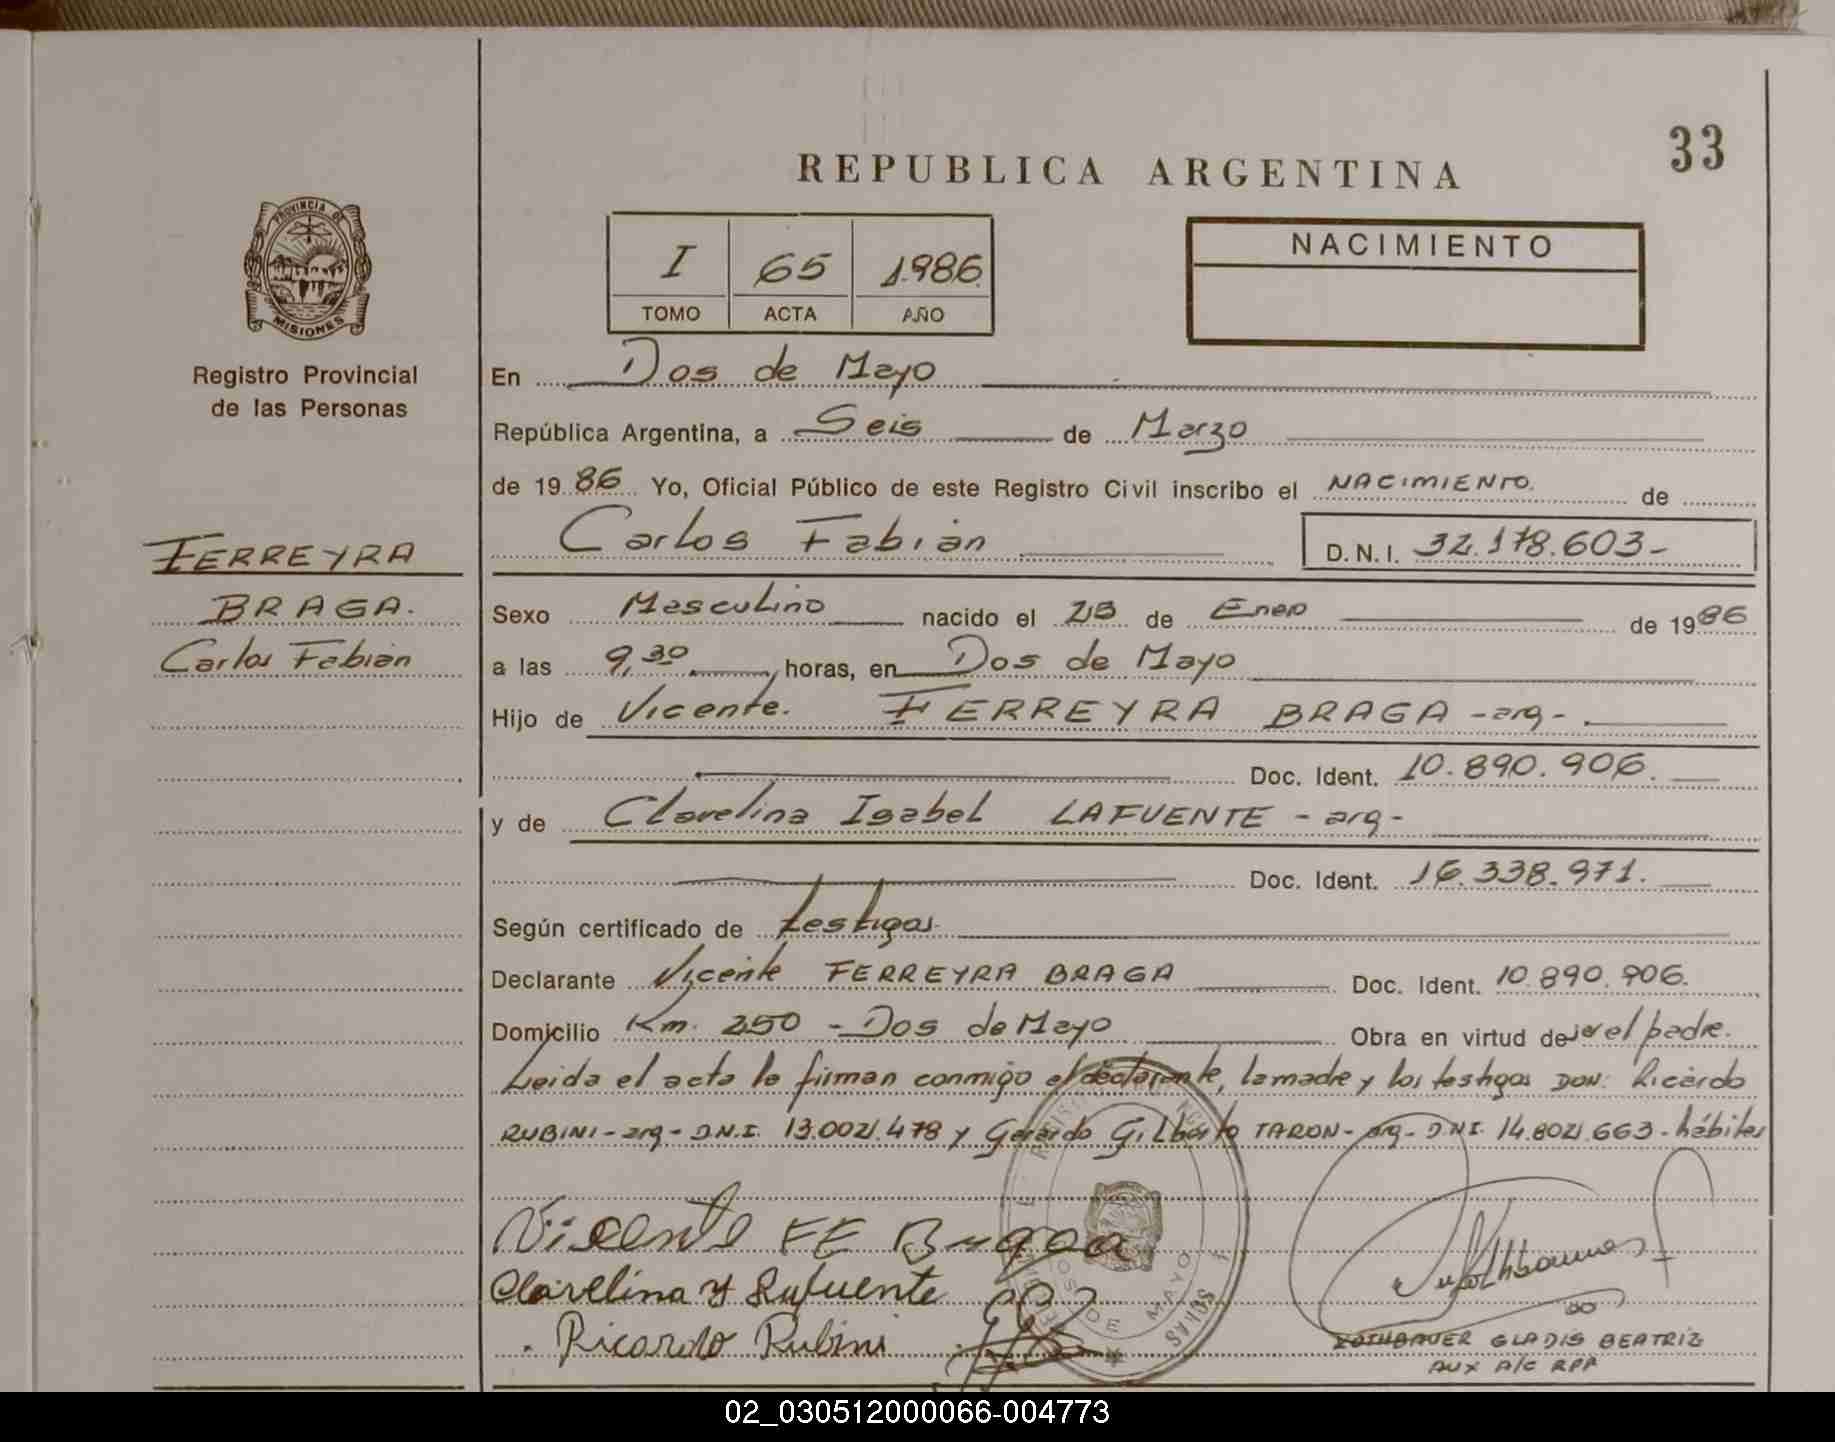 33
REPUBLICA ARGENTINA
PROVINCIA DE
MISIONES
Registro Provincial
de las Personas
I 65 1.986
TOMO ACTA AÑO
NACIMIENTO
En Dos de Mayo
República Argentina, a Seis de Marzo
de 1986 Yo, Oficial Público de este Registro Civil inscribo el NACIMIENTO de
Carlos Fabián D.N.I. 32.178.603-
FERREYRA
BRAGA.
Carlos Fabián
Sexo Masculino nacido el de Enero de 1986
a las 9,30 horas, en Dos de Mayo
Hijo de Vicente. FERREYRA BRAGA -arg-.
Doc. Ident. 10.890.906.
y de Clavelina Isabel LAFUENTE - arg -
Doc. Ident. 16.338.971.
Según certificado de testigos.
Declarante Vicente FERREYRA BRAGA Doc. Ident. 10.890.906.
Domicilio Km. 250 - Dos de Mayo Obra en virtud de ser el padre.
Leida el acta la firman conmigo el declarante, la madre y los testigos DON: Ricardo
RUBINI - arg - D.N.I. 13.002.478 y Gerardo Gilberto TARON - arg - DNI 14.802.663 - hábiles
Vicente FE Braga
Clavelina Y Lafuente
Ricardo Rubini
DOS DE MAYO
ROTHBAUER GLADIS BEATRIZ
AUX A/C RPP
02_030512000066-004773